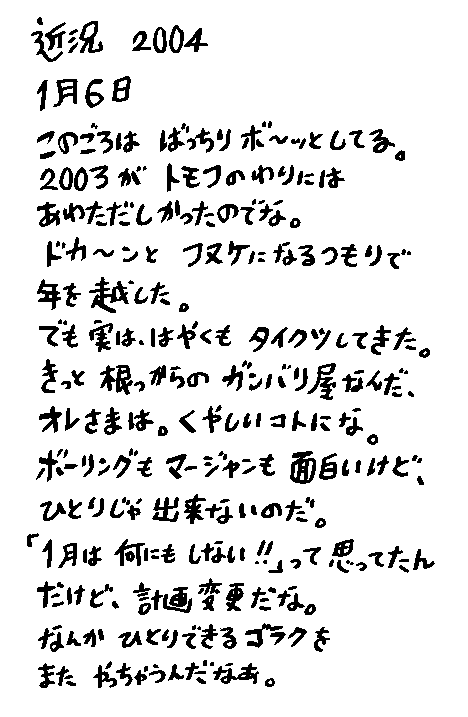 近況 2004
1月6日
このごろは ばっちりボ〜ッとしてる。
2003が トモフのわりには
あわただしかったのでな。
ドカ〜ンと フヌケになるつもりで
年を越した。
でも実は、はやくも タイクツしてきた。
きっと 根っからの ガンバリ屋なんだ、
オレさまは。くやしいコトにな。
ボーリングも マージャンも 面白いけど、
ひとりじゃ 出来ないのだ。
「1月は 何にも しない!!」って 思ってたん
だけど、計画変更だな。
なんか ひとりできるゴラクを
また やっちゃうんだなあ。